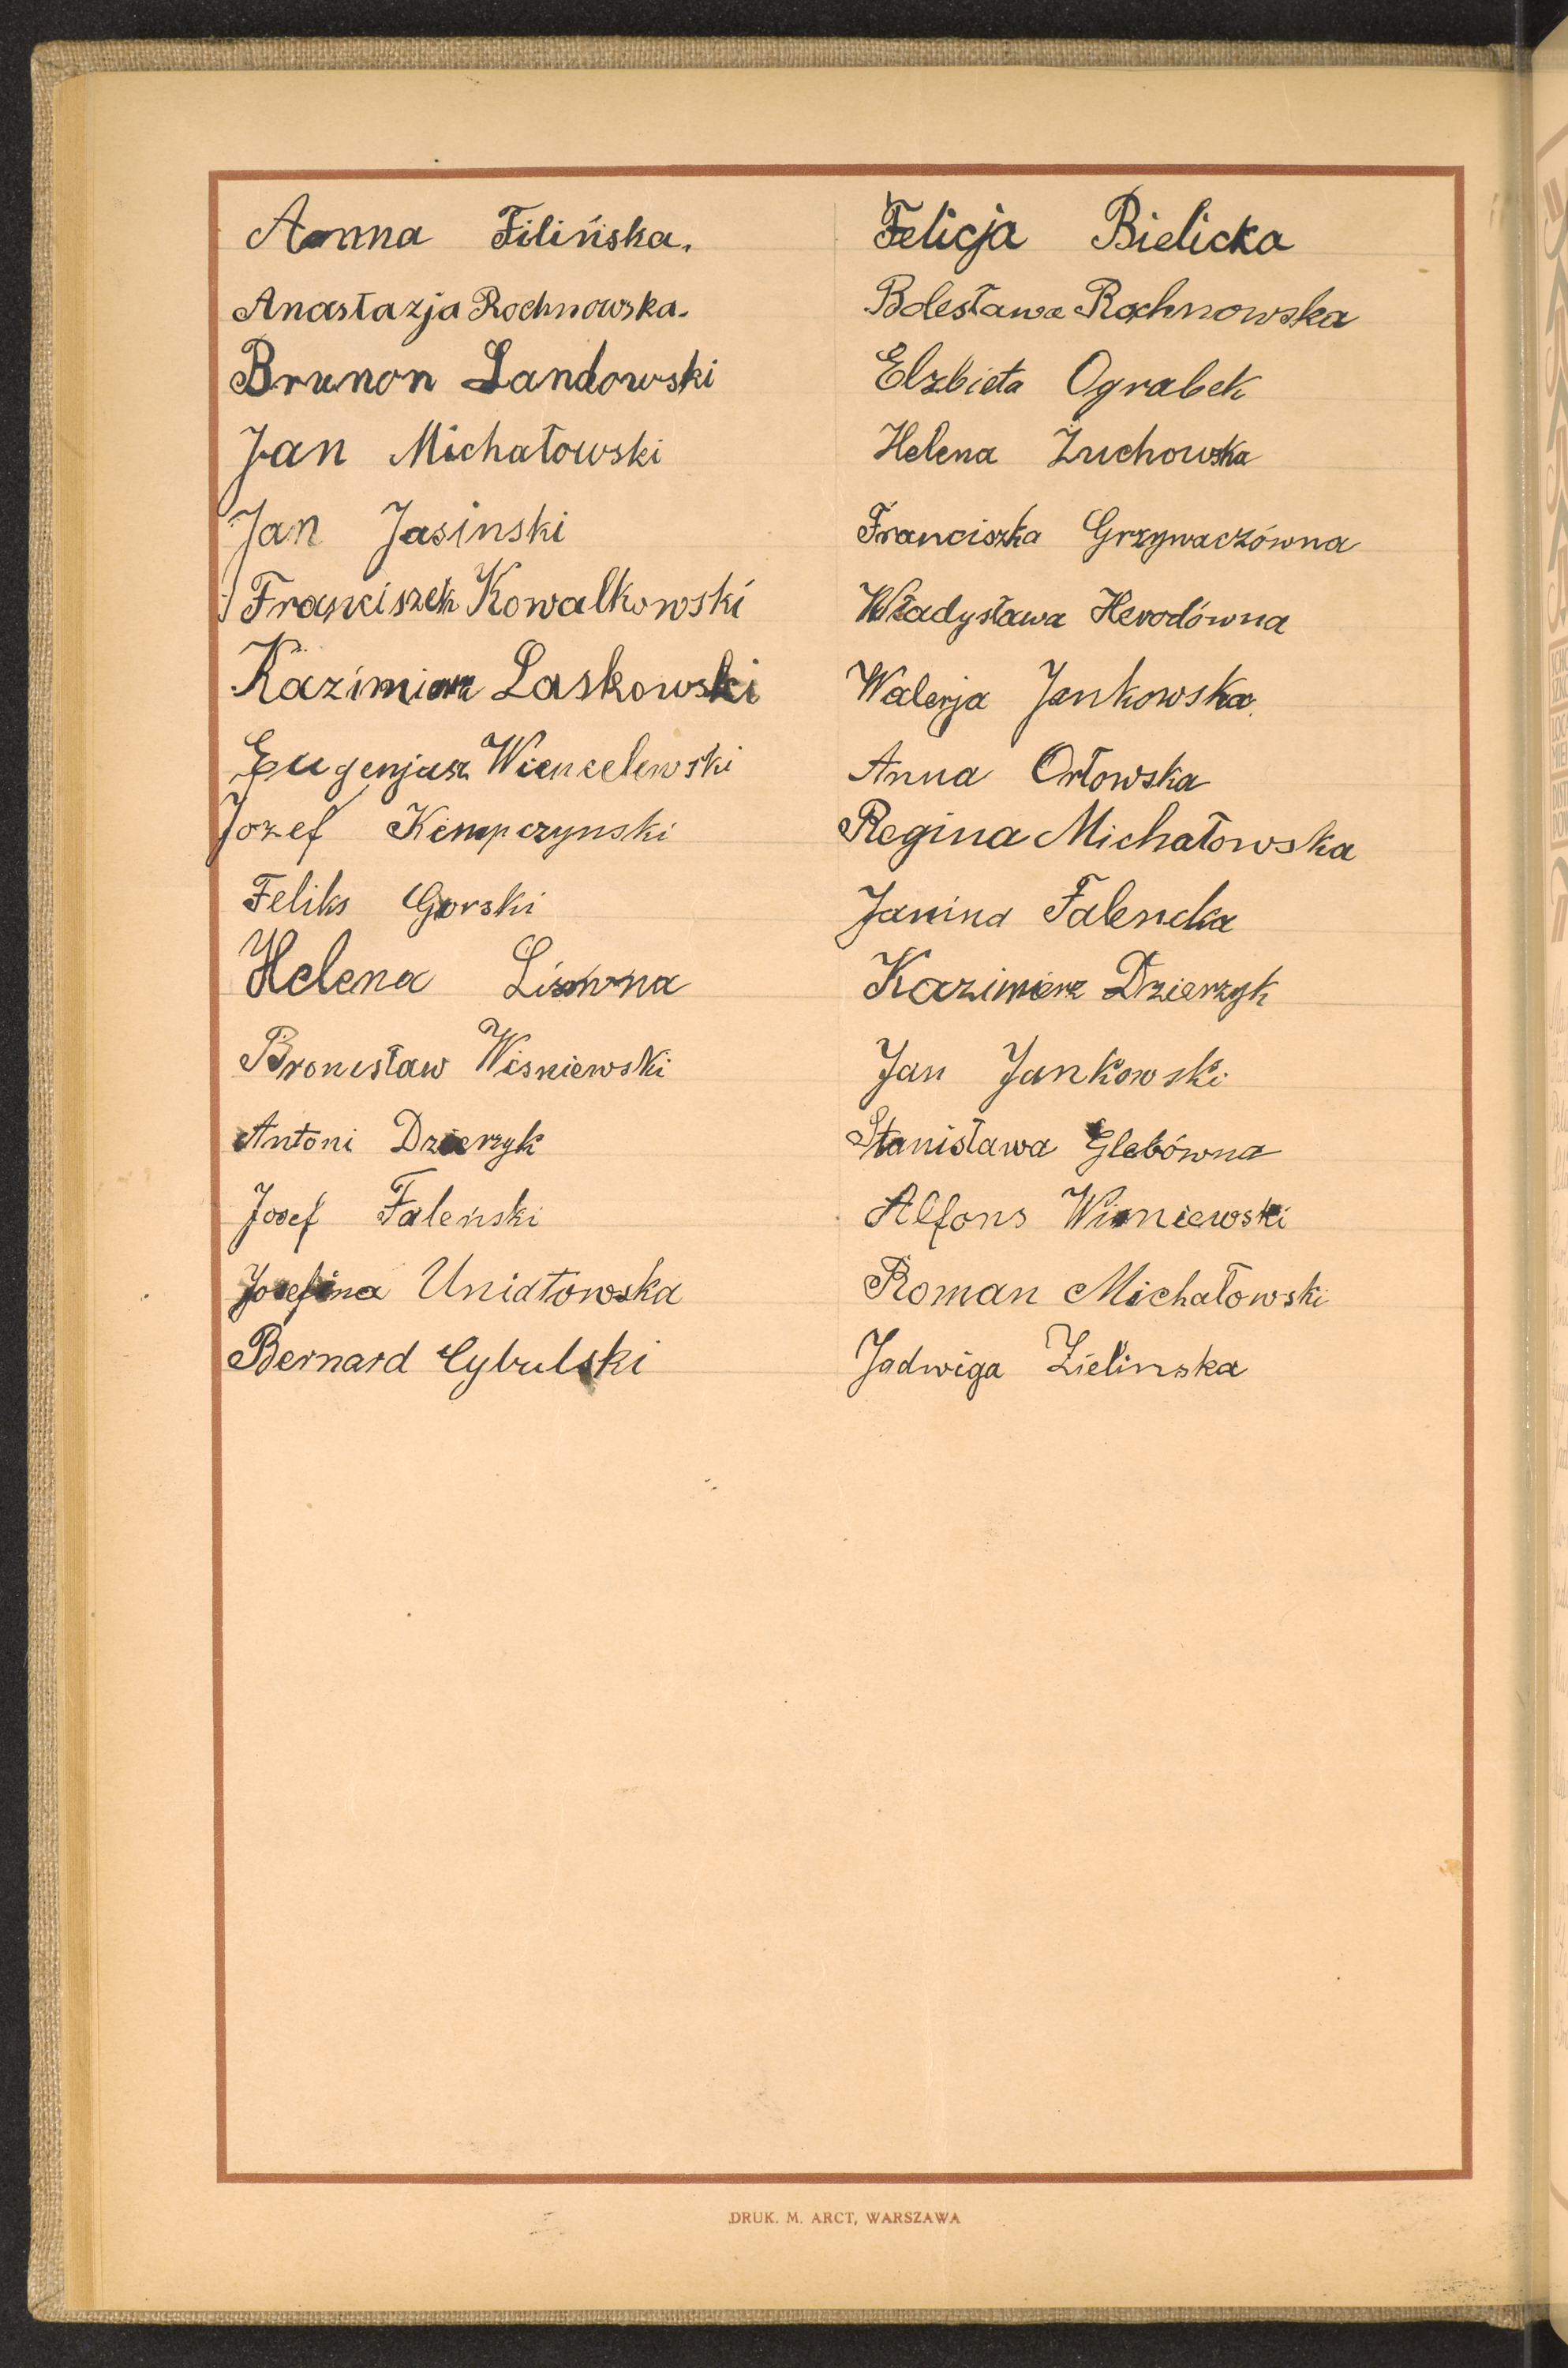 Anna Filińska.
Anastazja Rochnowska.
Brunon Landowski
Jan Michałowski
Jan Jasinski
Franciszek Kowalkowski
Kazimierz Laskowski
Eugenjusz Wiencelewski
Jozef Kempczynski
Feliks Gorski
Helena
Bronisław Wisniewski
Antoni Dzierzyk
Josef Faleński
Josefina Uniatowska
Bernard Cybulski
Felicja Bielicka
Bolesława Rochnowska
Elzbieta Ograbek
Helena Żuchowska
Franciszka Grzywaczówna
Władysława Herodówna
Walerja Jankowska
Anna Orłowska
Regina Michałowska
Janina Falencka
Kazimierz Dzierzyk
Jan Jankowski
Stanisława Glebówna
Alfons Wisniewski
Roman Michałowski
Jadwiga Zielinska
DRUK. M. ARCT, WARSZAWA